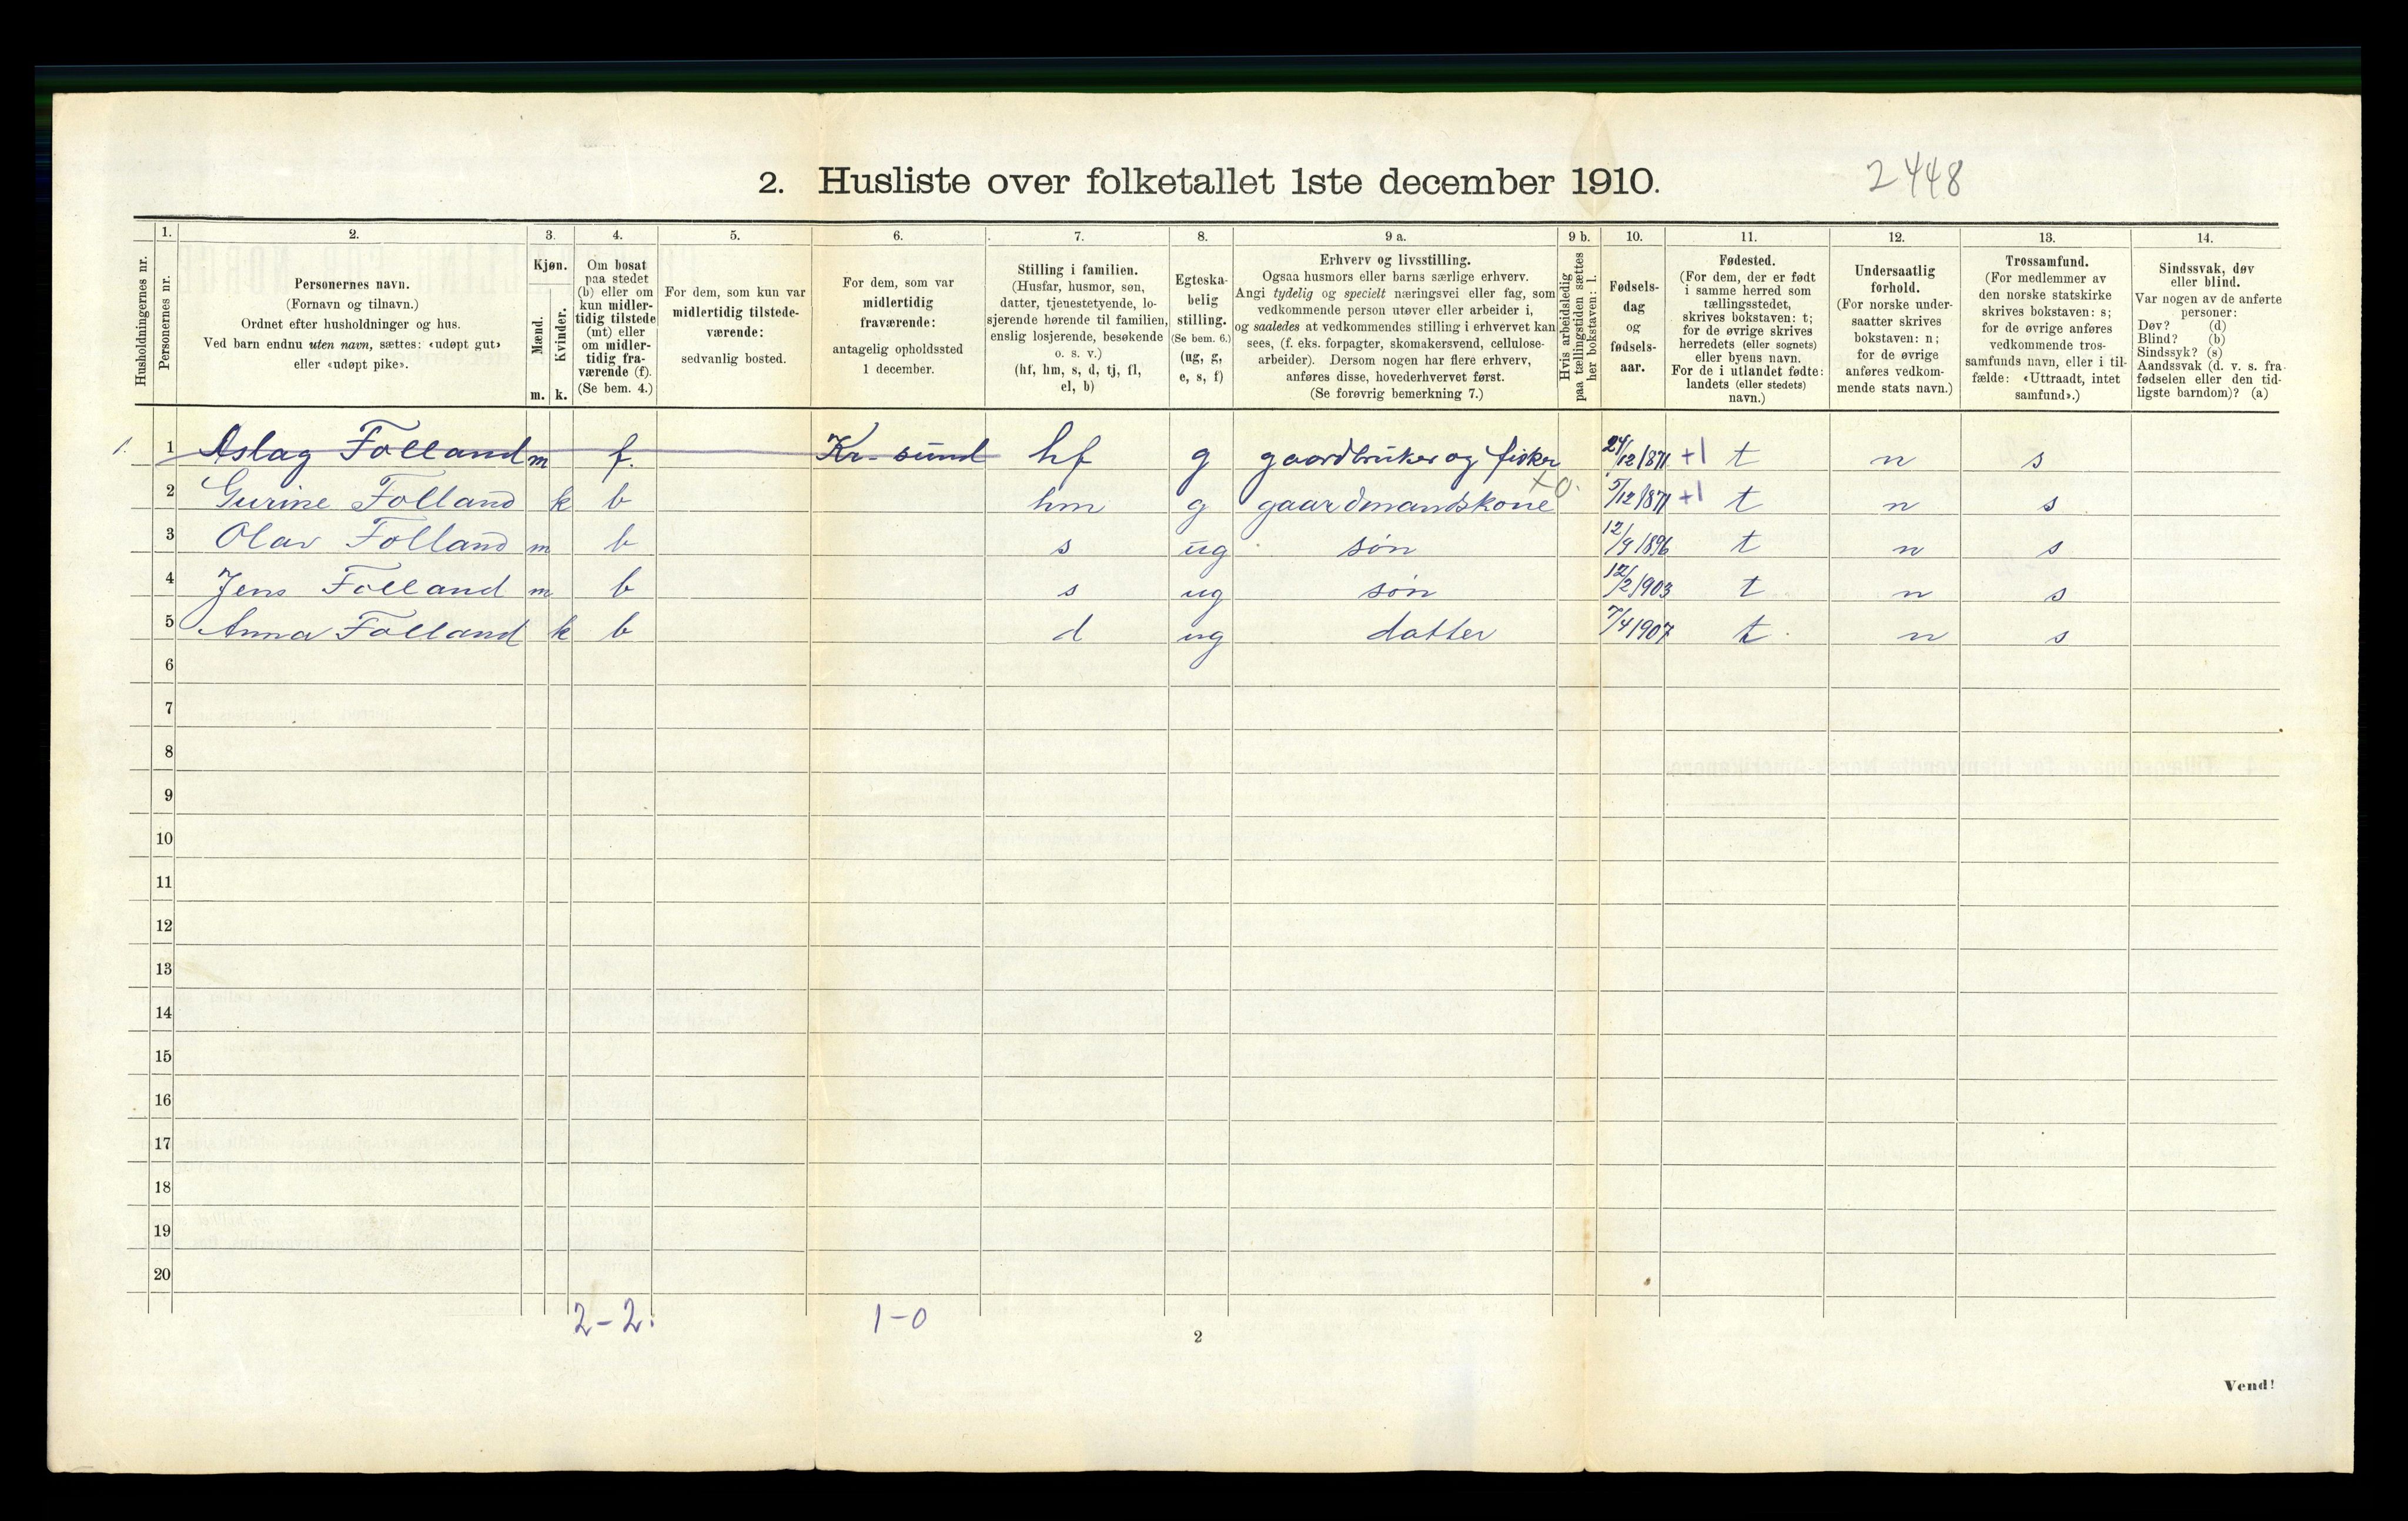 2. Husliste over folketallet 1ste december 1910. 2448
Husholdningernes nr.
1.
Personernes nr.
2.
Personernes navn.
(Fornavn og tilnavn.)
Ordnet efter husholdninger og hus.
Ved barn endnu uten navn, sættes: «udøpt gut»
eller «udøpt pike».
3.
Kjøn.
Mænd.
Kvinder.
m. k.
4.
Om bosat
paa stedet
(b) eller om
kun midler-
tidig tilstede
(mt) eller
om midler-
tidig fra-
værende (f).
(Se bem. 4.)
5.
For dem, som kun var
midlertidig tilstede-
værende:
sedvanlig bosted.
6.
For dem, som var
midlertidig
fraværende:
antagelig opholdssted
1 december.
7.
Stilling i familien.
(Husfar, husmor, søn,
datter, tjenestetyende, lo-
sjerende hørende til familien,
enslig losjerende, besøkende
o. s. v.)
(hf, hm, s, d, tj, fl,
el, b)
8.
Egteska-
belig
stilling.
(Se bem. 6.)
(ug, g,
e, s, f)
9 a.
Erhverv og livsstilling.
Ogsaa husmors eller barns særlige erhverv.
Angi tydelig og specielt næringsvei eller fag, som
vedkommende person utøver eller arbeider i,
og saaledes at vedkommendes stilling i erhvervet kan
sees, (f. eks. forpagter, skomakersvend, cellulose-
arbeider). Dersom nogen har flere erhverv,
anføres disse, hovederhvervet først.
(Se forøvrig bemerkning 7.)
9 b.
Hvis arbeidsledig
paa tællingstiden sættes
her bokstaven: l.
10.
Fødsels-
dag
og
fødsels-
aar.
11.
Fødested.
(For dem, der er født
i samme herred som
tællingsstedet,
skrives bokstaven: t;
for de øvrige skrives
herredets (eller sognets)
eller byens navn.
For de i utlandet fødte:
landets (eller stedets)
navn.)
12.
Undersaatlig
forhold.
(For norske under-
saatter skrives
bokstaven: n;
for de øvrige
anføres vedkom-
mende stats navn.)
13.
Trossamfund.
(For medlemmer av
den norske statskirke
skrives bokstaven: s;
for de øvrige anføres
vedkommende tros-
samfunds navn, eller i til-
fælde: «Uttraadt, intet
samfund».)
14.
Sindssvak, døv
eller blind.
Var nogen av de anførte
personer:
Døv? (d)
Blind? (b)
Sindssyk? (s)
Aandssvak (d. v. s. fra
fødselen eller den tid-
ligste barndom)? (a)
1. 1 Aslag Folland m f. Kr-sund hf g gaardbruker og fisker 24/12 1871 +1 t n s
2 Gurine Folland k b hm g gaardmandskone +0. 5/12 1871 +1 t n s
3 Olav Folland m b s ug søn 12/9 1896 t n s
4 Jens Folland m b s ug søn 12/2 1903 t n s
5 Anna Folland k b d ug datter 7/4 1907 t n s
6
7
8
9
10
11
12
13
14
15
16
17
18
19
20
2-2. 1-0
2
Vend!